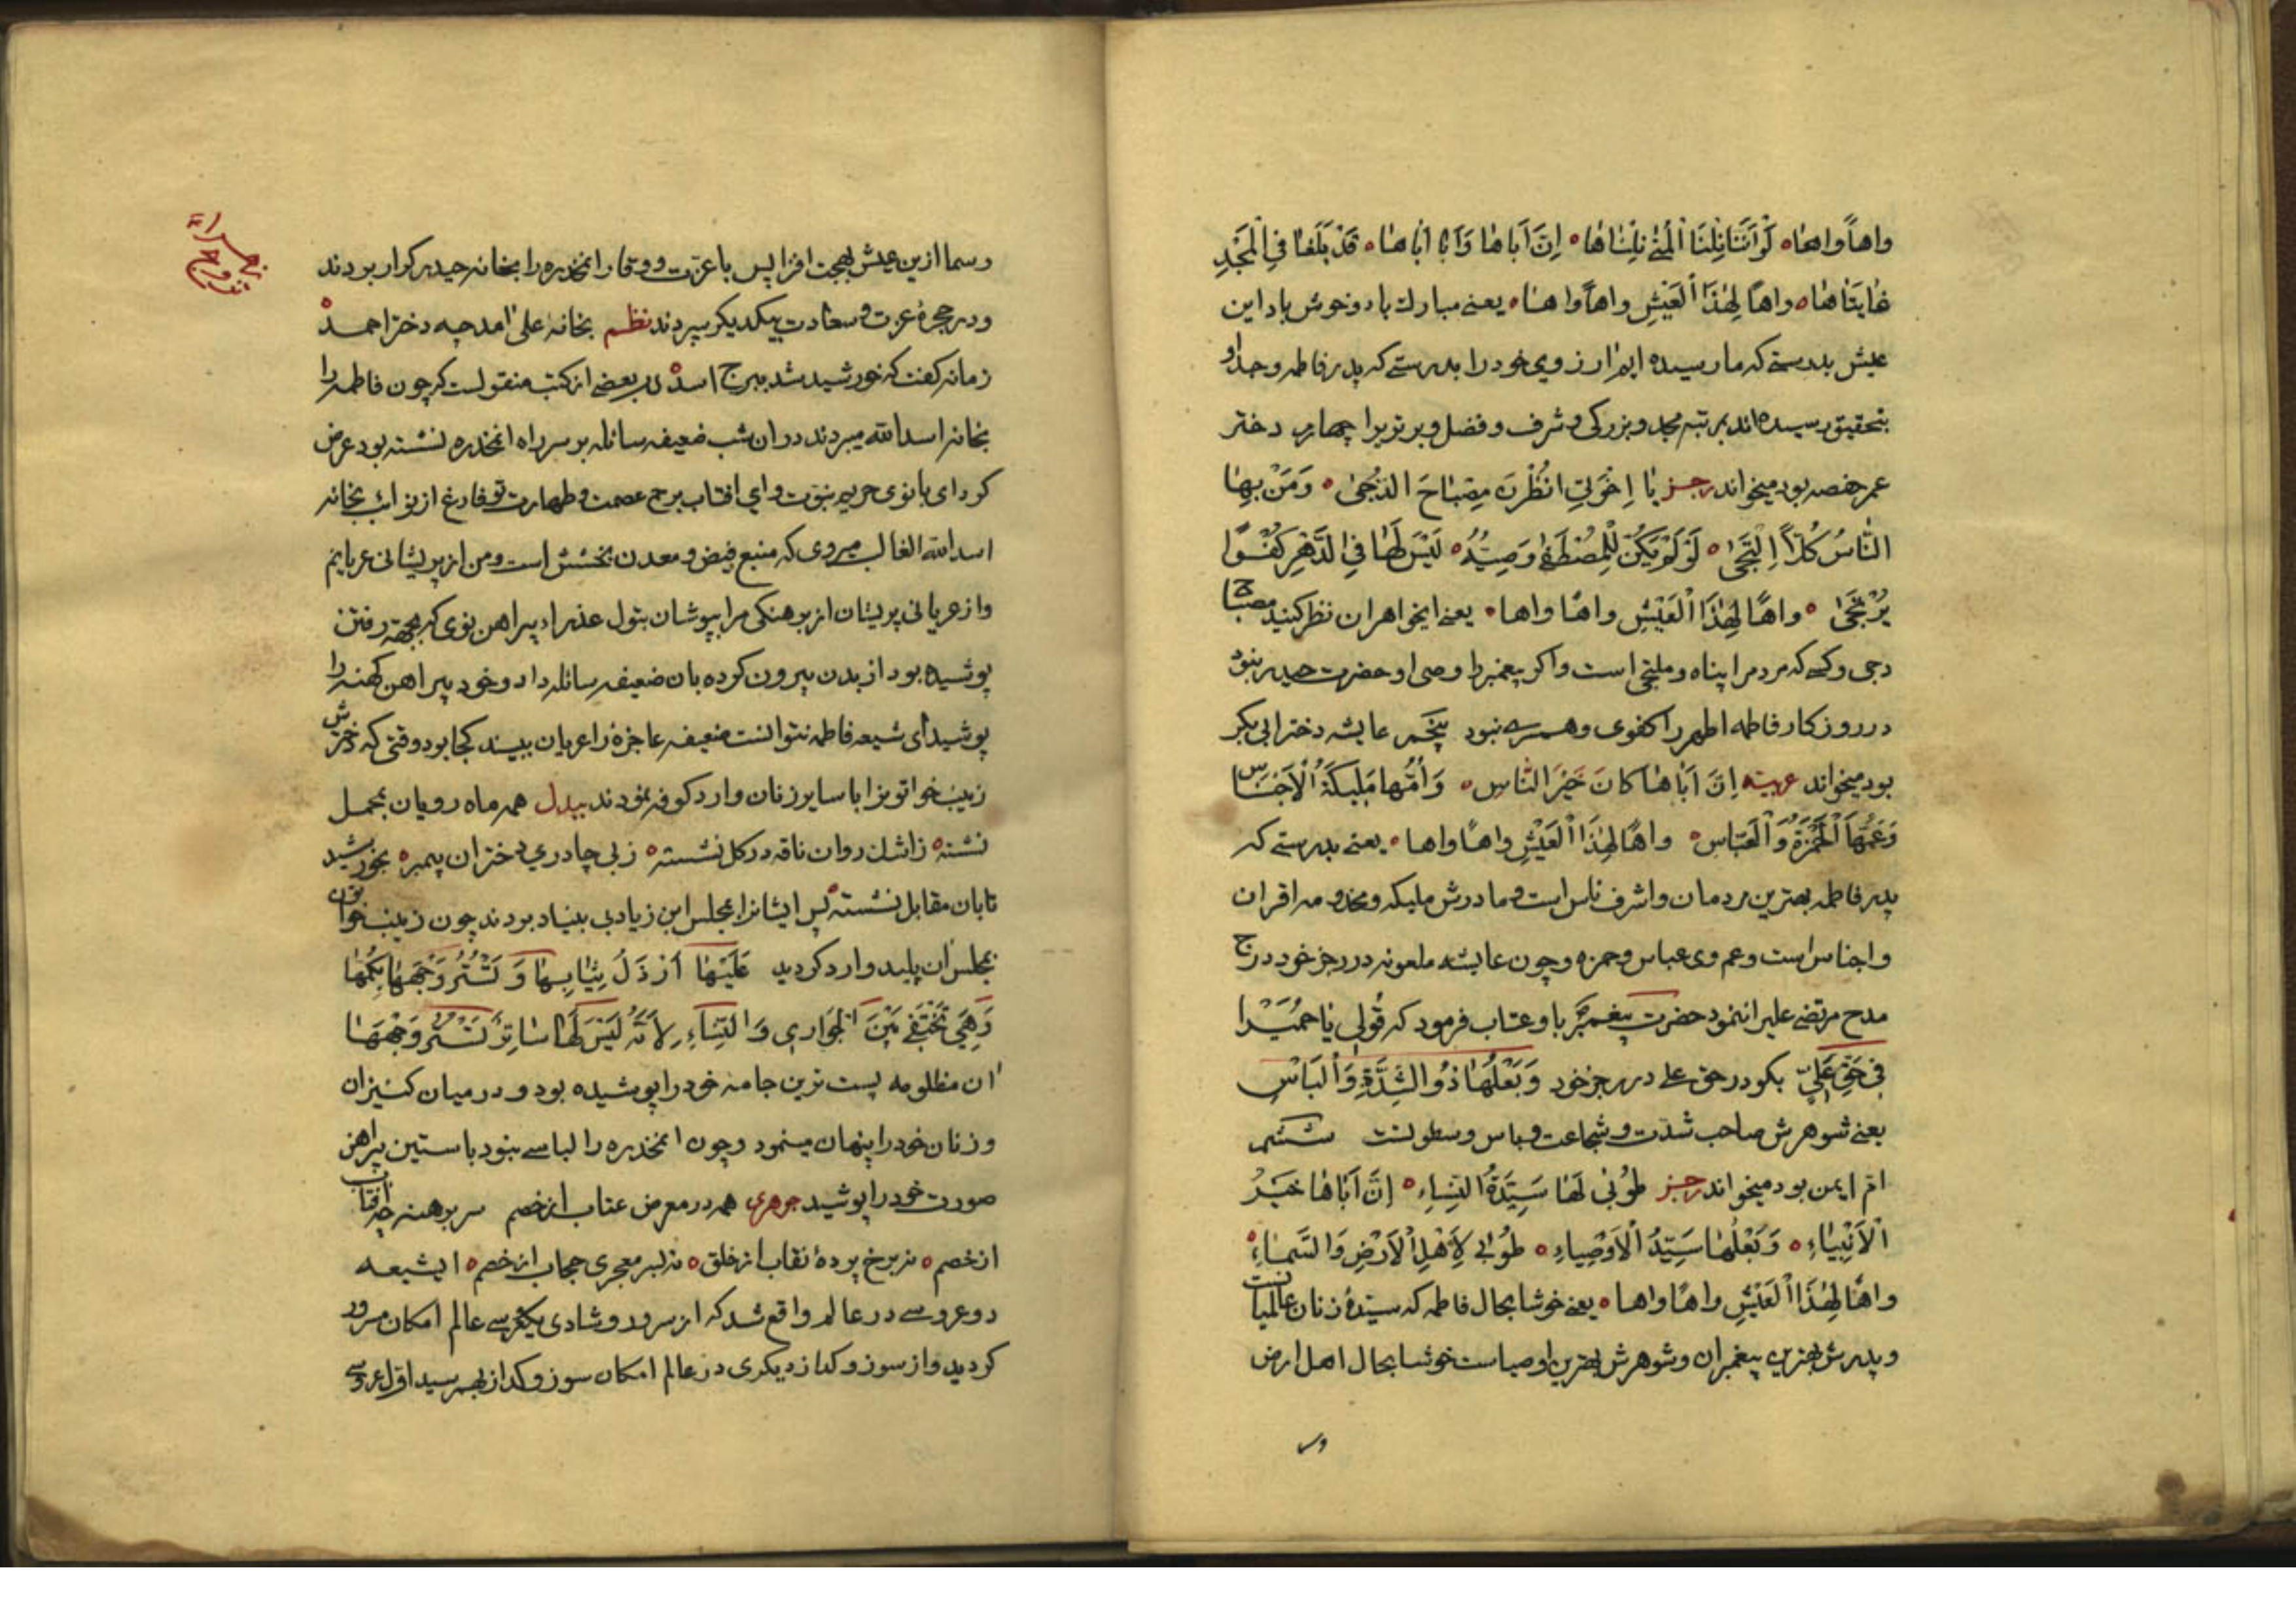 واهاً واها لَوْ اَنَّنَا نِلْنَا الْمُنىٰ نِلْنٰاهٰا اِنَّ اَباها وَاَبا اَباها قَدْ بَلَغا فِي الْمَجْدِ
غٰايَتٰاهٰا واهاً لِهٰذَا الْعَيْشِ واهاً واها يعنے مبارك باد و خوش باد اين
عيش بدرستے كه ما رسيده ايم ارزوي خود را بدرستے كه پدر فاطمه وجد او
بتحقيق رسيده اند بمرتبه مجد و بزركى و شرف و فضل و برتريرا چهارم دختر
عمر حفصه بود ميخواند رجز يٰا اِخْوَتِي انْظُرْنَ مِصْبٰاحَ الدُّجىٰ وَمَنْ بِهٰا
النّٰاسُ كُلّاً اِلْتَجىٰ لَوْ لَمْ يَكُنْ لِلْمُصْطَفىٰ وَصِيُّهُ لَيْسَ لَهٰا فِي الدَّهْرِ كُفْواً
يُرْتَجىٰ واهاً لِهٰذَا الْعَيْشِ واهاً واها يعنے ايخواهران نظر كنيد مصباح
دجى وكسے كه مردم را پناه و ملتجى است و اكر پيغمبر را وصى او حضرت حيدر نبود
در روزكار فاطمه اطهر را كفوى و همسرے نبود پنجم عايشه دختر ابى بكر
بود ميخواند عربيه اِنَّ اَبٰاهٰا كانَ خَيْرَ النّٰاسِ وَاُمُّها مَلِيكَةُ الْاَجْنٰاسِ
وَعَمُّهَا الْحَمْزَةُ وَالْعَبّاسِ واهاً لِهٰذَا الْعَيْشِ واهاً واها يعنے بدرستے كه
پدر فاطمه بهترين مردمان و اشرف ناس است و مادرش مليكه و مخدومه اقران
و اجناس است و عم وى عباس و حمزه و چون عايشه ملعونه در رجز خود درج
مدح مرتضے علىرا ننمود حضرت پيغمبر باو عتاب فرمود كه قُولِي يٰا حُمَيْرا
فِي حَقِّ عَلِيٍّ بكو در حق على در رجز خود وَبَعْلُهٰا ذُو الشِّدَّةِ وَالْبَاْسِ
يعنے شوهرش صاحب شدت و شجاعت و باس و سطوتست ششم
ام ايمن بود ميخواند رجز طُوبىٰ لَهٰا سَيِّدَةُ النِّسٰاءِ اِنَّ اَبٰاهٰا خَيْرُ
الْاَنْبِيٰاءِ وَبَعْلُهٰا سَيِّدُ الْاَوْصِيٰاءِ طُوبىٰ لِاَهْلِ الْاَرْضِ وَالسَّمٰاءِ
واهاً لِهٰذَا الْعَيْشِ واهاً واها يعنے خوشا بحال فاطمه كه سيدهٔ زنان عالميانست
و پدرش بهترين پيغمبران و شوهرش بهترين اوصياست خوشا بحال اهل ارض
وس
وسما ازين عيش بهجت افزا پس با عزت و وقار انمخدره را بخانه حيدر كرار بردند
و در حجرهٔ عزت و سعادت بيكديكر سپردند نظم بخانهٔ على امد چه دختر احمد
زمانه كفت كه خورشيد شد ببرج اسد در بعضے از كتب منقولست كه چون فاطمه را
بخانه اسدالله ميبردند در ان شب ضعيفه سائله بر سر راه انمخدره نشسته بود عرض
كرد اى بانوى حريم نبوت و اي افتاب برج عصمت و طهارت تو فارغ از نوائب بخانه
اسدالله الغالب ميروى كه منبع فيض و معدن بخشش است و من از پريشانى عريانم
و از عريانى پريشان از برهنكى مرا بپوشان بتول عذرا پيراهن نوى كه بجهة رفتن
پوشيده بود از بدن بيرون كرده بان ضعيفه سائله داد و خود پيراهن كهنه را
پوشيد اى شيعه فاطمه نتوانست ضعيفه عاجزه را عريان ببيند كجا بود وقتى كه دخترش
زينب خواتونرا با ساير زنان وارد كوفه نمودند بيدل همه ماه رويان بمحمل
نشسته ز اشك روان ناقه در كل نشسته ز بى چادري دختران پيمبر بخورشيد
تابان مقابل نشسته پس ايشانرا بمجلس ابن زياد بى بنياد بردند چون زينب خواتون
بمجلس ان پليد وارد كرديد عَلَيْهٰا اَرْذَلُ ثِيٰابِهٰا وَتَسْتُرُ وَجْهَهٰا بِكُمِّهٰا
وَهِيَ تَخْتَفِي بَيْنَ الْجَوٰارِي وَالنِّسٰاءِ لِاَنَّهُ لَيْسَ لَهٰا سٰاتِرٌ تَسْتُرُ وَجْهَهٰا
ان مظلومه پست ترين جامه خود را پوشيده بود و در ميان كنيزان
و زنان خود را پنهان مينمود و چون انمخدره را لباسے نبود با ستين پيراهن
صورت خود را پوشيد جوهرى همه در معرض عتاب از خصم سر برهنه چه افتاب
از خصم نه برخ پردهٔ نقاب از خلق نه بسر معجرى حجاب از خصم ايشيعه
دو عروسے در عالم واقع شد كه از سرور و شادى يكعروسے عالم امكان مسرور
كرديد و از سوز و كداز ديكرى در عالم امكان سوز و كداز بهم رسيد اول عروسے